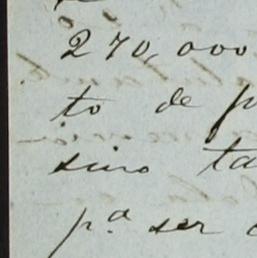 270,000
to de p
sino ta
pª ser